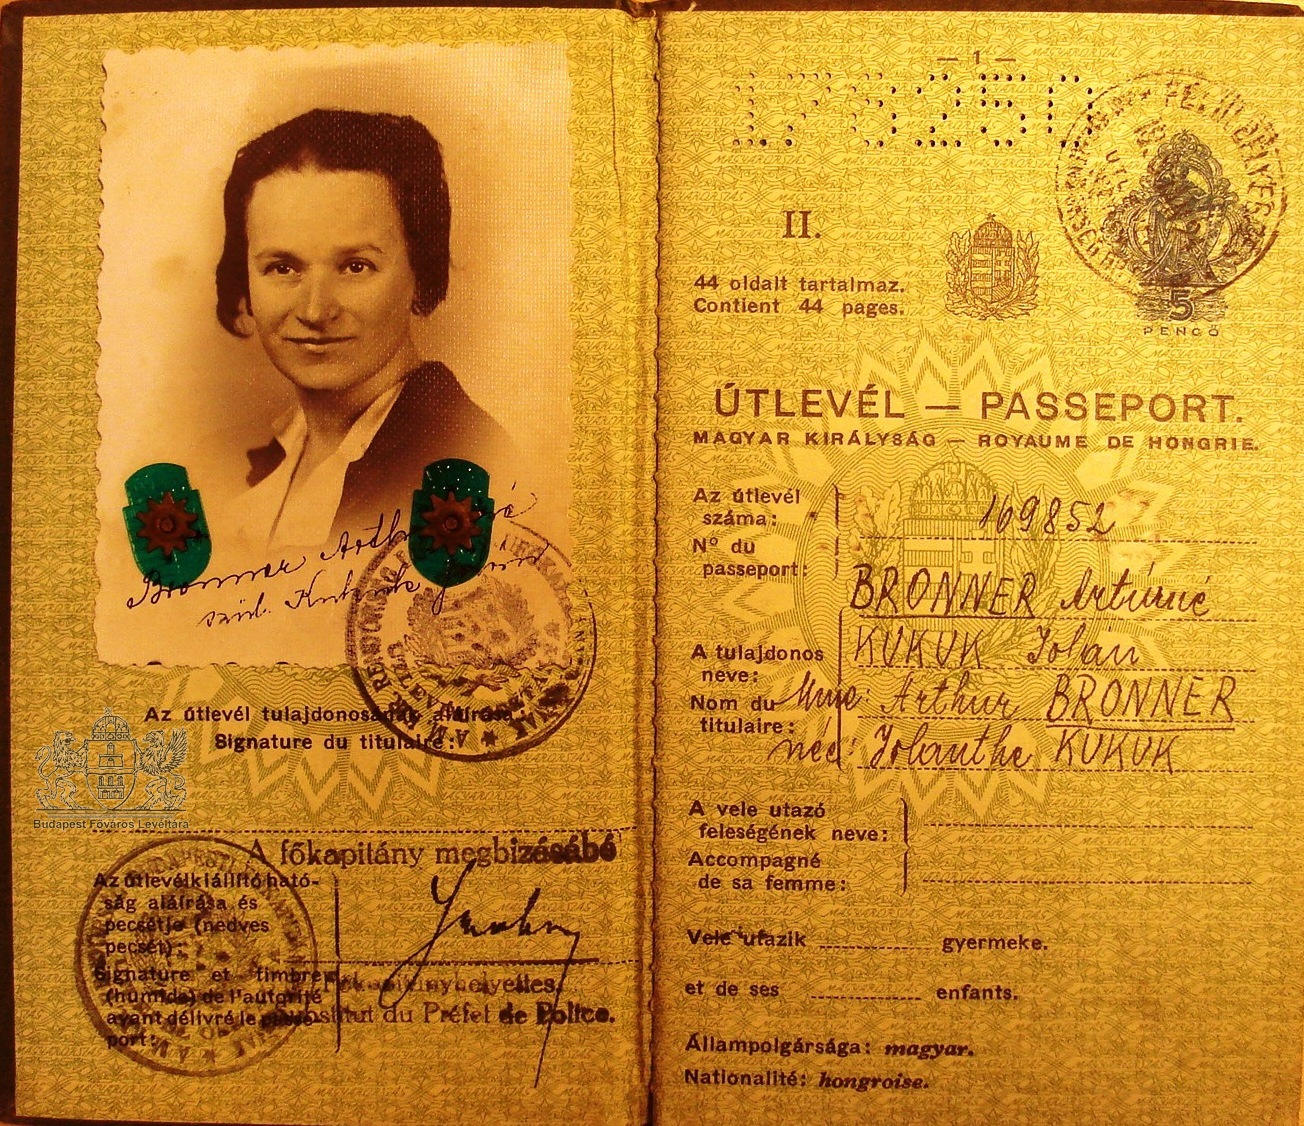 Bronner Arthurné
szül. Kukuk Jolán
Az útlevél tulajdonosának aláírása:
Signature du titulaire:
Budapest Főváros Levéltára
A főkapitány megbízásábó
Az útlevélkiállító ható-
ság aláírása és
pecsétje (nedves
pecsét):
Signature et timbre
(humide) de l'autorité
ayant délivré le passe-
port:
Főkapitányhelyettes.
Substitut du Préfet de Police.
— 1 —
II.
44 oldalt tartalmaz.
Contient 44 pages.
5
PENGŐ
ÚTLEVÉL — PASSEPORT.
MAGYAR KIRÁLYSÁG — ROYAUME DE HONGRIE.
Az útlevél
száma:
Nº du
passeport:
169852
BRONNER Artúrné
A tulajdonos
neve:
KUKUK Jolán
Nom du
titulaire:
Mme: Arthur BRONNER
née: Jolanthe KUKUK
A vele utazó
feleségének neve:
Accompagné
de sa femme:
Vele utazik gyermeke.
et de ses enfants.
Állampolgársága: magyar.
Nationalité: hongroise.